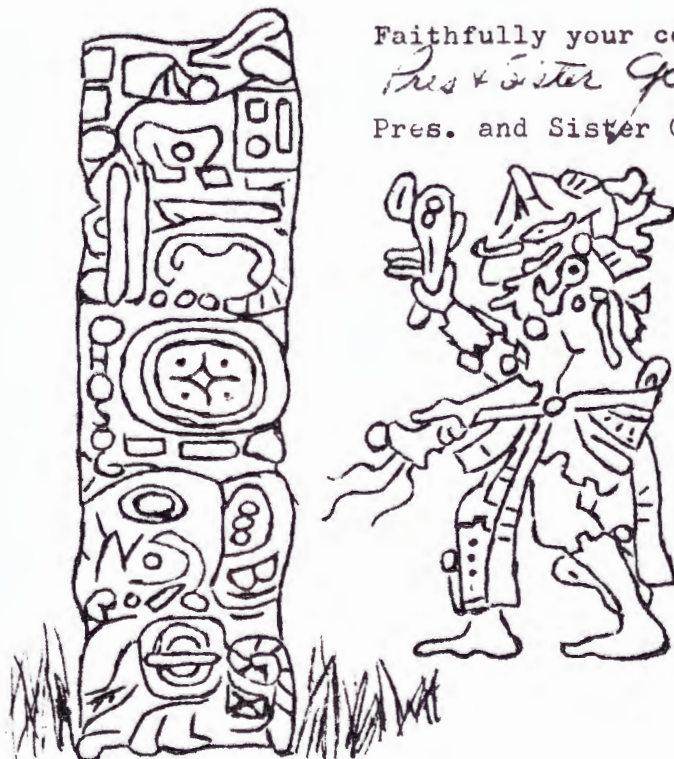 Faithfully your
Pres & Sister
Pres. and Sister